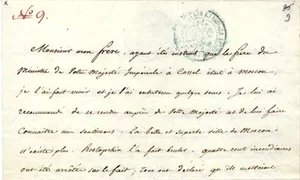 No 9.
Monsieur mon frère, ayant été instruit que le frère du
Ministre de Votre Majesté Impériale à Cassel était à Moscou,
je l'ai fait venir et je l'ai entretenu quelque tems. Je lui ai
recommandé de se rendre auprès de Votre Majesté et de lui faire
connaitre mes sentimens. La belle et superbe ville de Moscou
n'existe plus. Rostopchin l'a fait bruler. quatre cents incendiaires
ont été arrêtés sur le fait; tous ont déclaré qu'ils mettaient